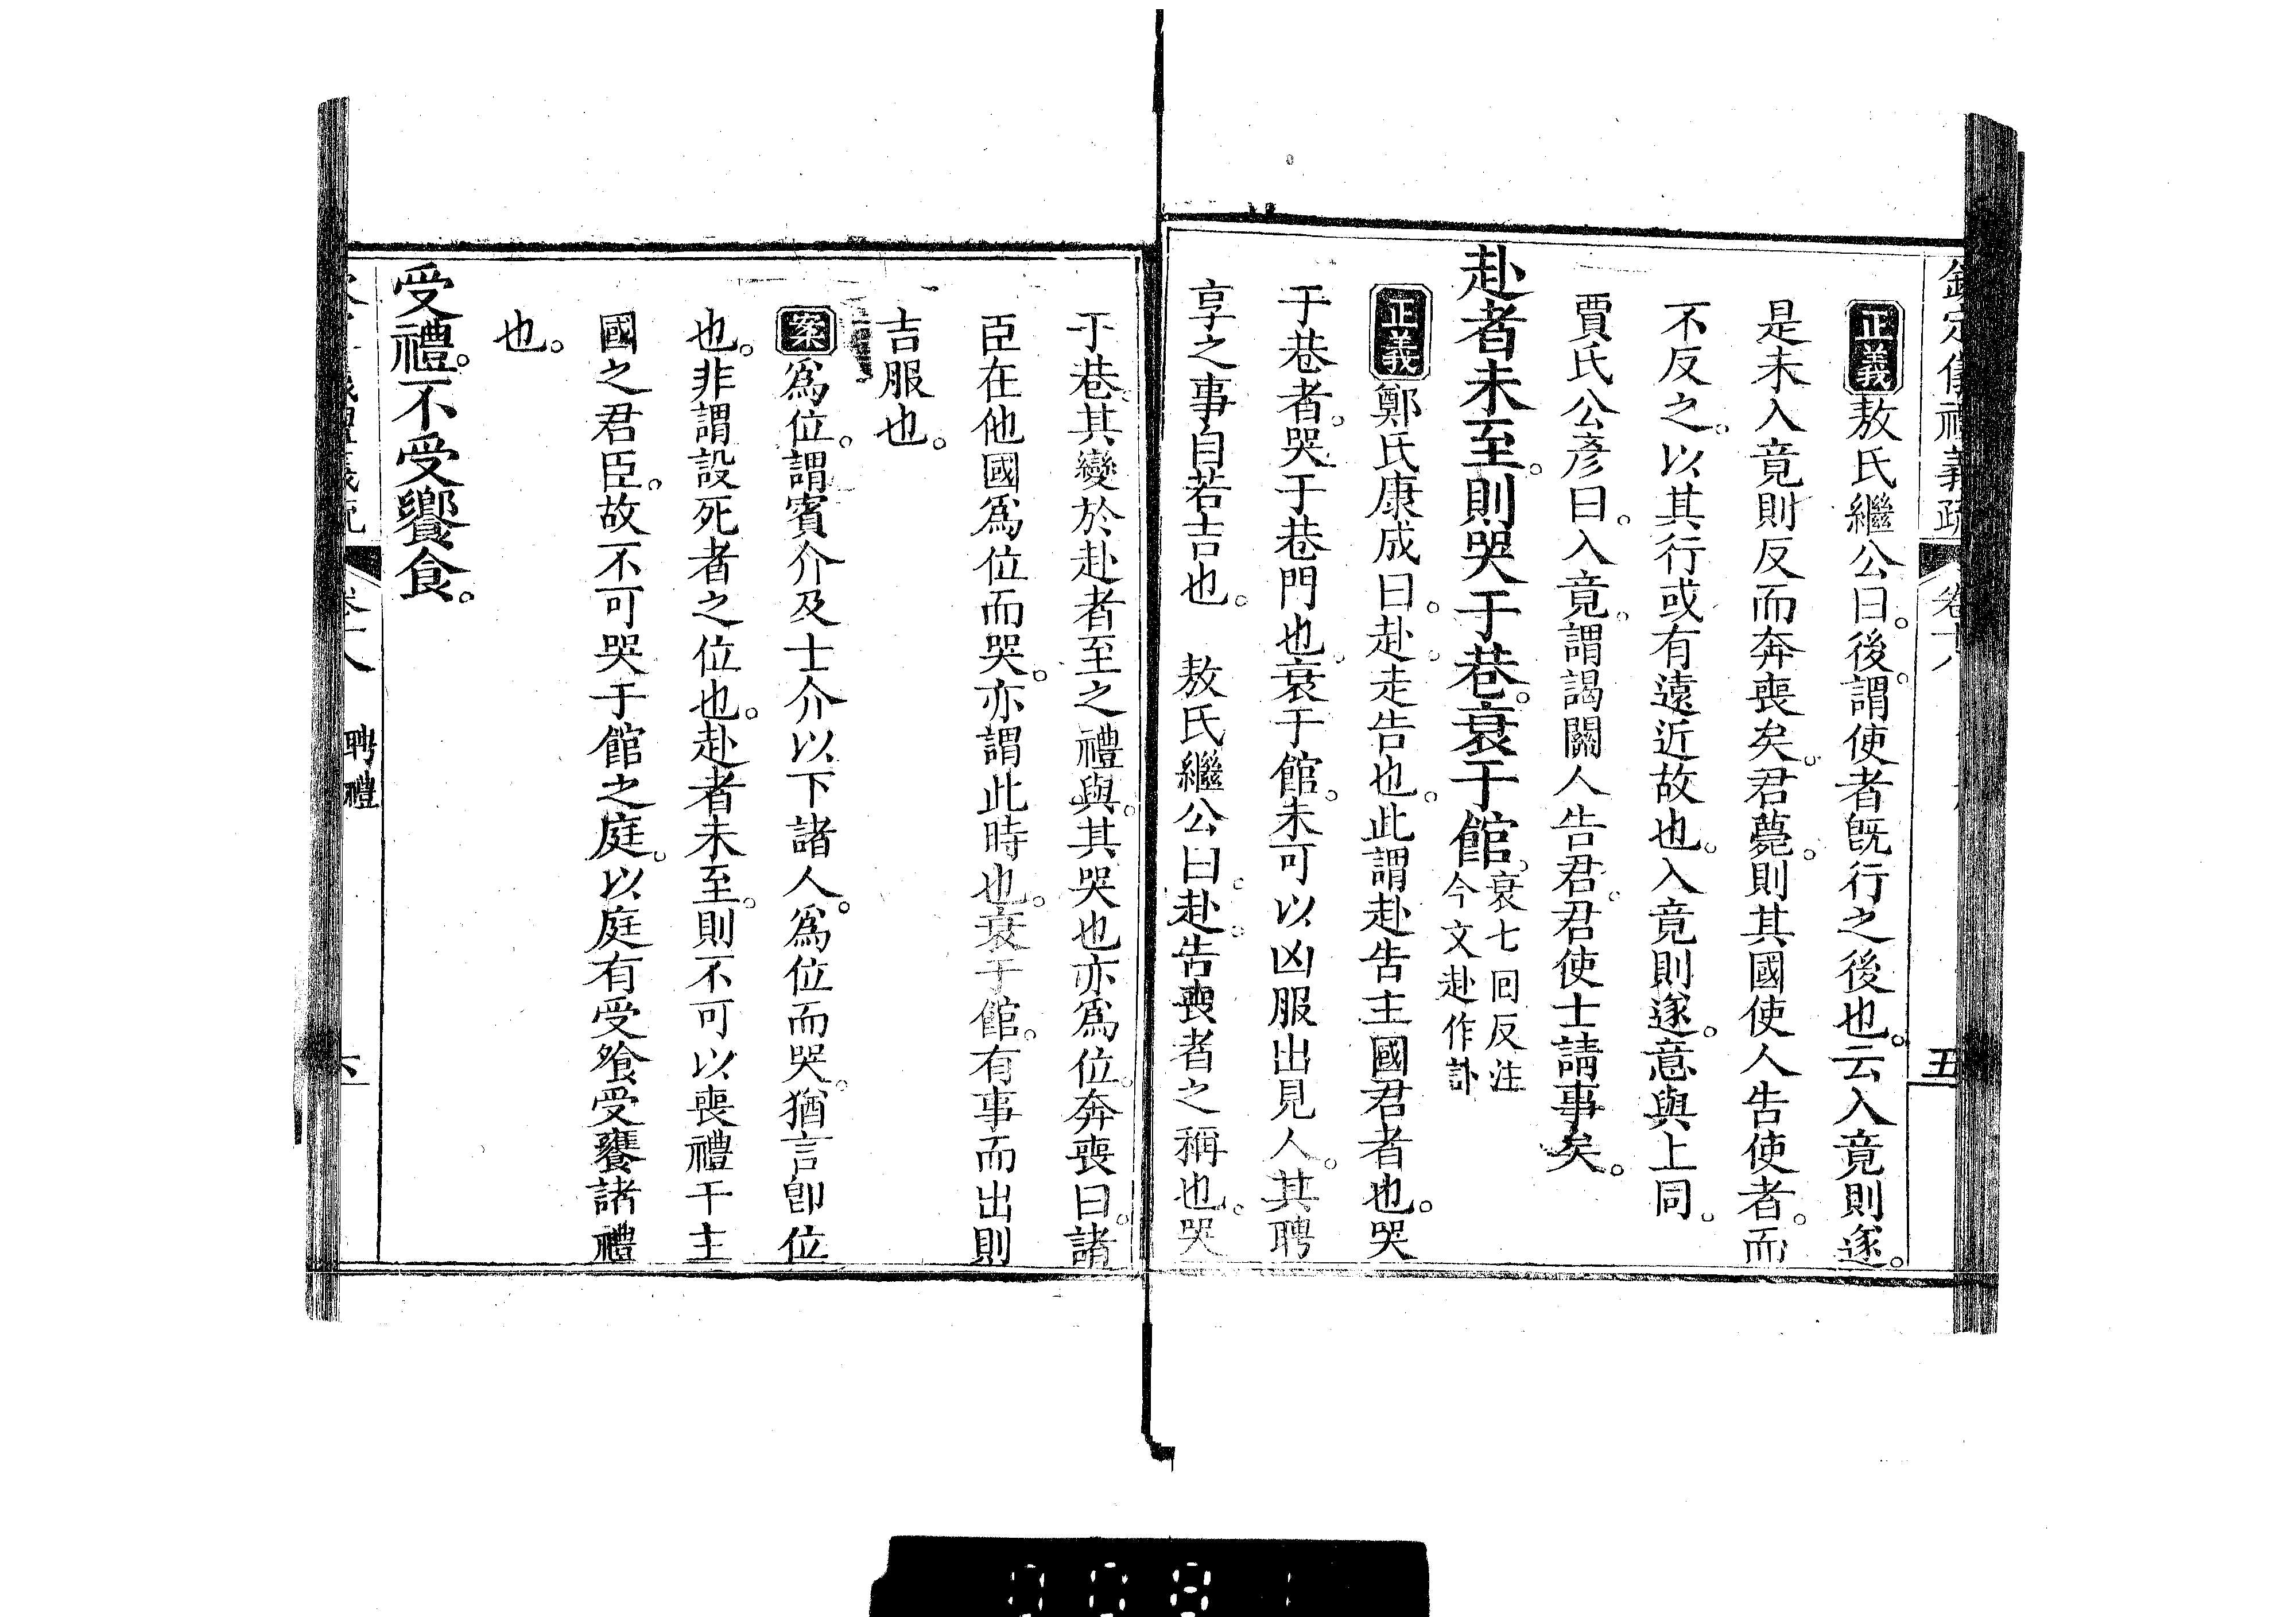 欽定儀禮義疏 卷十八 五
正義敖氏繼公曰。後。謂使者既行之後也。云入竟則遂。
是未入竟則反而奔喪矣。君薨。則其國使人告使者。而
不反之。以其行或有遠近故也。入竟則遂。意與上同。
賈氏公彥曰。入竟。謂謁關人告君。君使士請事矣。
赴者未至。則哭于巷。衰于館。衰七回反注
今文赴作訃
正義鄭氏康成曰。赴。走告也。此謂赴告主國君者也。哭
于巷者。哭于巷門也。衰于館。未可以凶服出見人。其聘
享之事自若吉也。 敖氏繼公曰。赴。告喪者之稱也。哭
于巷。其變於赴者至之禮與。其哭也亦爲位。奔喪曰。諸
臣在他國爲位而哭。亦謂此時也。衰于館。有事而出則
吉服也。
案爲位。謂賓介及士介以下諸人。爲位而哭。猶言卽位
也。非謂設死者之位也。赴者未至。則不可以喪禮干主
國之君臣。故不可哭于館之庭。以庭有受飱受饔諸禮
也。
受禮。不受饗食。
聘禮